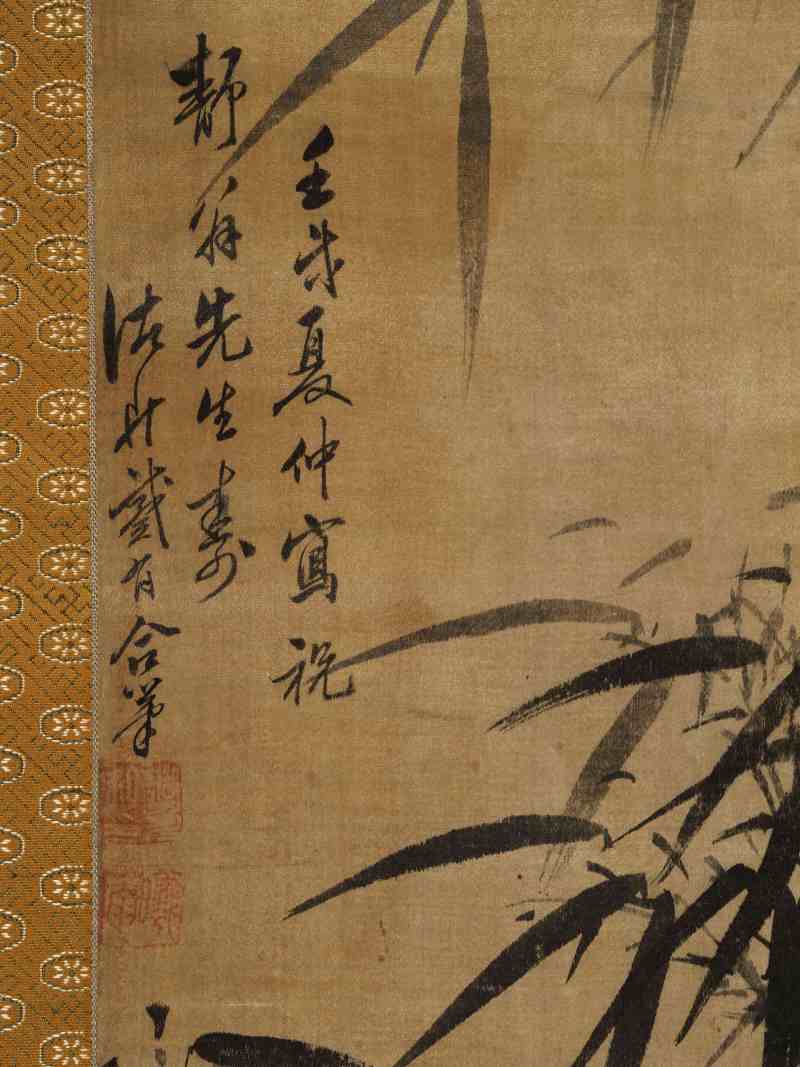 壬戌夏仲寫祝
靜翁先生壽
諸升戴有合筆